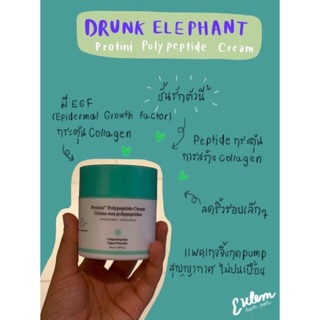 DRUNK ELEPHANT
Protini Polypeptide Cream
ชั้นรักตัวนี้
มี EGF
(Epidermal Growth Factor)
กระตุ้น Collagen
Peptide กระตุ้น
การสร้าง Collagen
ลดริ้วรอยเล็กๆ
แพคเกจจิ้งกดpump
สุญญากาศ ไม่ปนเปื้อน
Protini™ Polypeptide Cream
Crème aux polypeptides